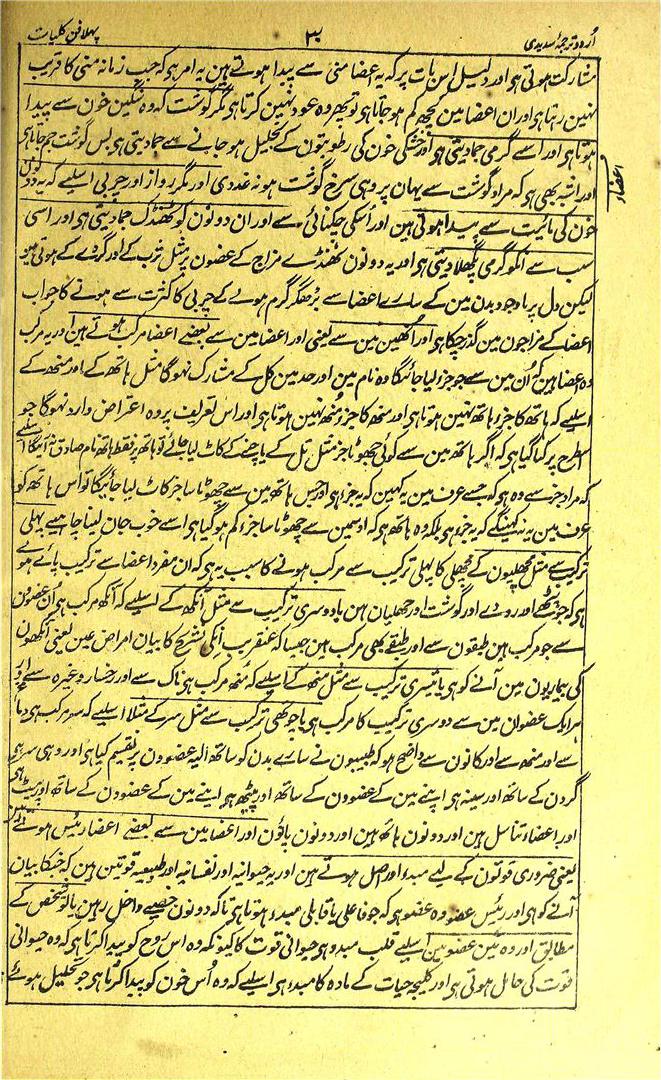 اُردو ترجمۂ سدیدی ۳ پہلا فن کلیات
مشارکت ہوتی ہی اور دلیل اس بات پر کہ یہ اعضا منی سے پیدا ہوتے ہین یہ امر ہی کہ جب زمانہ منی کا قریب
نہین رہتا ہی اور ان اعضا مین کچھ کم ہو جاتا ہی تو پھر وہ عود نہین کرتا ہی مگر گوشت کہ وہ سنگین خون سے پیدا
ہوتا ہی اور اسے گرمی جما دیتی ہی اور خشکی خون کی رطوبتون کے تحلیل ہو جانے سے جما دیتی ہی بس گوشت جم جاتا ہی
اعضاء
اور اشبہ بھی ہی کہ مراد گوشت سے یہان پر وہی سرخ گوشت ہو نہ غددی اور مگر رواز اور چربی اسلیے کہ یہ دونون
خون کی مائیت سے پیدا ہوتی ہین اور اُسکی چکنائی سے اور ان دونون کو ٹھنڈک جما دیتی ہی اور اسی
سبب سے انکو گرمی پگھلا دیتی ہی اور یہ دونون ٹھنڈے مزاج کے عضون پر مثل ثرب کے اور گردے کے ہوتی ہین
لیکن دل پر باوجود بدن مین کے سارے اعضا سے بڑھکر گرم ہونے کے چربی کا کثرت سے ہونے کا جواب
اعضا کے مزاجون مین گذر چکا ہی اور اُنھین مین سے یعنی اور اعضا مین سے بعضے اعضا مرکب ہوتے ہین اور یہ مرکب
وہ اعضا ہین کہ اُن مین سے جو جزء لیا جائیگا وہ نام مین اور حد مین کل کے مشارک نہوگا مثل ہاتھ کے اور منھ کے
اسلیے کہ ہاتھ کا جزء ہاتھ نہین ہوتا ہی اور منھ کا جزء منھ نہین ہوتا ہی اور اس تعریف پر وہ اعتراض وارد نہوگا جو
اسطرح پر کیا گیا ہی کہ اگر ہاتھ مین سے کوئی چھوٹا جز مثل تل کے یا چنے کے کاٹ لیا جائے تو ہاتھ پر فقط ہاتھ نام صادق آئیگا اسلیے
کہ مراد جزء سے وہ ہی کہ جسے عرف مین یہ کہین کہ یہ جزء ہی اور جس ہاتھ مین سے چھوٹا سا جز کاٹ لیا جائیگا تو اس ہاتھ کو
عرف مین یہ نہ کہینگے کہ یہ جزء ہی بلکہ وہ ہاتھ ہی کہ اوسمین سے چھوٹا سا جزء کم ہو گیا ہی اسے خوب جان لینا چاہیے پہلی
ترکیب سے مثل مچھلیون کے مچھلی کا پہلی ترکیب سے مرکب ہونے کا سبب یہ ہی کہ ان مفرد اعضا سے ترکیب پائے ہوے
ہی کہ جو پٹھے اور رودے اور گوشت اور جھلیان ہین یا دوسری ترکیب سے مثل آنکھ کے اسلیے کہ آنکھ مرکب ہی اُن عضون
سے جو مرکب ہین طبقون سے اور طبقے بھی مرکب ہین جیسا کہ عنقریب اُنکی تشریح کا بیان امراض عین یعنی آنکھون
کی بیماریون مین آنے کو ہی یا تیسری ترکیب سے مثل منھ کے اسلیے کہ منھ مرکب ہی ناک سے اور رخسار وغیرہ سے اور
ہر ایک عضوان مین سے دوسری ترکیب کا مرکب ہی یا چوتھی ترکیب سے مثل سر کے مثلا اسلیے کہ سر مرکب ہی دماغ
سے اور منھ سے اور کانون سے واضح ہو کہ طبیبون نے سارے بدن کو ساتھ آلیہ عضوون پر تقسیم کیا ہی اور وہی سر ہی
گردن کے ساتھ اور سینہ ہی اپنے مین کے عضوون کے ساتھ اور پیٹھ ہی اپنے مین کے عضوون کے ساتھ اور پیٹ ہی
اور اعضاء تناسل ہین اور دونون ہاتھ ہین اور دونون پاؤن اور اعضا مین سے بعضے اعضا رئیس ہوتے ہین
یعنی ضروری قوتون کے لیے مبدء اور اصل ہوتے ہین اور یہ حیوانیہ اور نفسانیہ اور طبیعیہ قوتین ہین کہ جنکا بیان
آنے کو ہی اور رئیس عضو وہ عضو ہی کہ جو فاعلی یا قابلی مبدء ہوتا ہی تاکہ دونون خصیے داخل رہین یا تو شخص کے
مطابق اور وہ تین عضو ہین اسلیے قلب مبدء ہی حیوانی قوت کا کیونکہ وہ اس روح کو پیدا کرتا ہی کہ وہ حیوانی
قوت کی حامل ہوتی ہی اور کلیجہ حیات کے مادہ کا مبدء ہی اسلیے کہ وہ اُس خون کو پیدا کرتا ہی جو تحلیل ہوئے